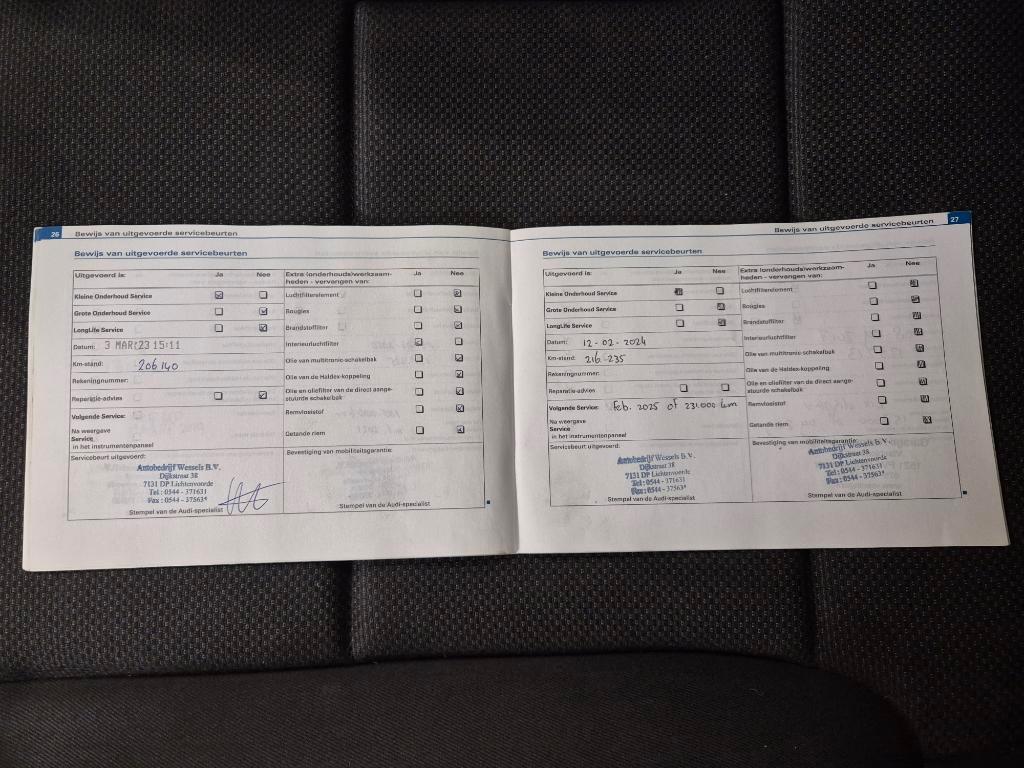 26 Bewijs van uitgevoerde servicebeurten
Bewijs van uitgevoerde servicebeurten
Uitgevoerd is: Ja Nee
Kleine Onderhoud Service
Grote Onderhoud Service
LongLife Service
Datum: 3 MAR 23 15:11
Km-stand: 206 140
Rekeningnummer:
Reparatie-advies
Volgende Service:
Na weergave
Service
in het instrumentenpaneel
Servicebeurt uitgevoerd:
Autobedrijf Wessels B.V.
Dijkstraat 38
7131 DP Lichtenvoorde
Tel : 0544 - 371631
Fax : 0544 - 37563*
Stempel van de Audi-specialist
Extra (onderhouds)werkzaam-
heden - vervangen van: Ja Nee
Luchtfilterelement
Bougies
Brandstoffilter
Interieurluchtfilter
Olie van multitronic-schakelbak
Olie van de Haldex-koppeling
Olie en oliefilter van de direct aange-
stuurde schakelbak
Remvloeistof
Getande riem
Bevestiging van mobiliteitsgarantie:
Stempel van de Audi-specialist
Bewijs van uitgevoerde servicebeurten 27
Bewijs van uitgevoerde servicebeurten
Uitgevoerd is: Ja Nee
Kleine Onderhoud Service
Grote Onderhoud Service
LongLife Service
Datum: 12-02-2024
Km-stand: 216-235
Rekeningnummer:
Reparatie-advies
Volgende Service: Feb. 2025 of 231.000 km
Na weergave
Service
in het instrumentenpaneel
Servicebeurt uitgevoerd:
Autobedrijf Wessels B.V.
Dijkstraat 38
7131 DP Lichtenvoorde
Tel : 0544 - 371631
Fax : 0544 - 37563*
Stempel van de Audi-specialist
Extra (onderhouds)werkzaam-
heden - vervangen van: Ja Nee
Luchtfilterelement
Bougies
Brandstoffilter
Interieurluchtfilter
Olie van multitronic-schakelbak
Olie van de Haldex-koppeling
Olie en oliefilter van de direct aange-
stuurde schakelbak
Remvloeistof
Getande riem
Bevestiging van mobiliteitsgarantie:
Autobedrijf Wessels B.V.
Dijkstraat 38
7131 DP Lichtenvoorde
Tel : 0544 - 371631
Fax : 0544 - 37563*
Stempel van de Audi-specialist